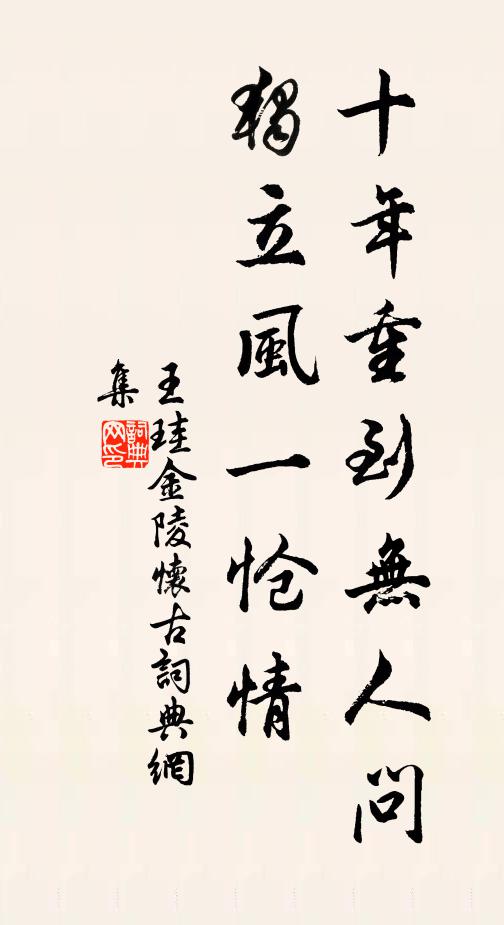 十年重到無人問
獨立風一愴情
王珪金陵懷古詞典網
集
詞典
网印